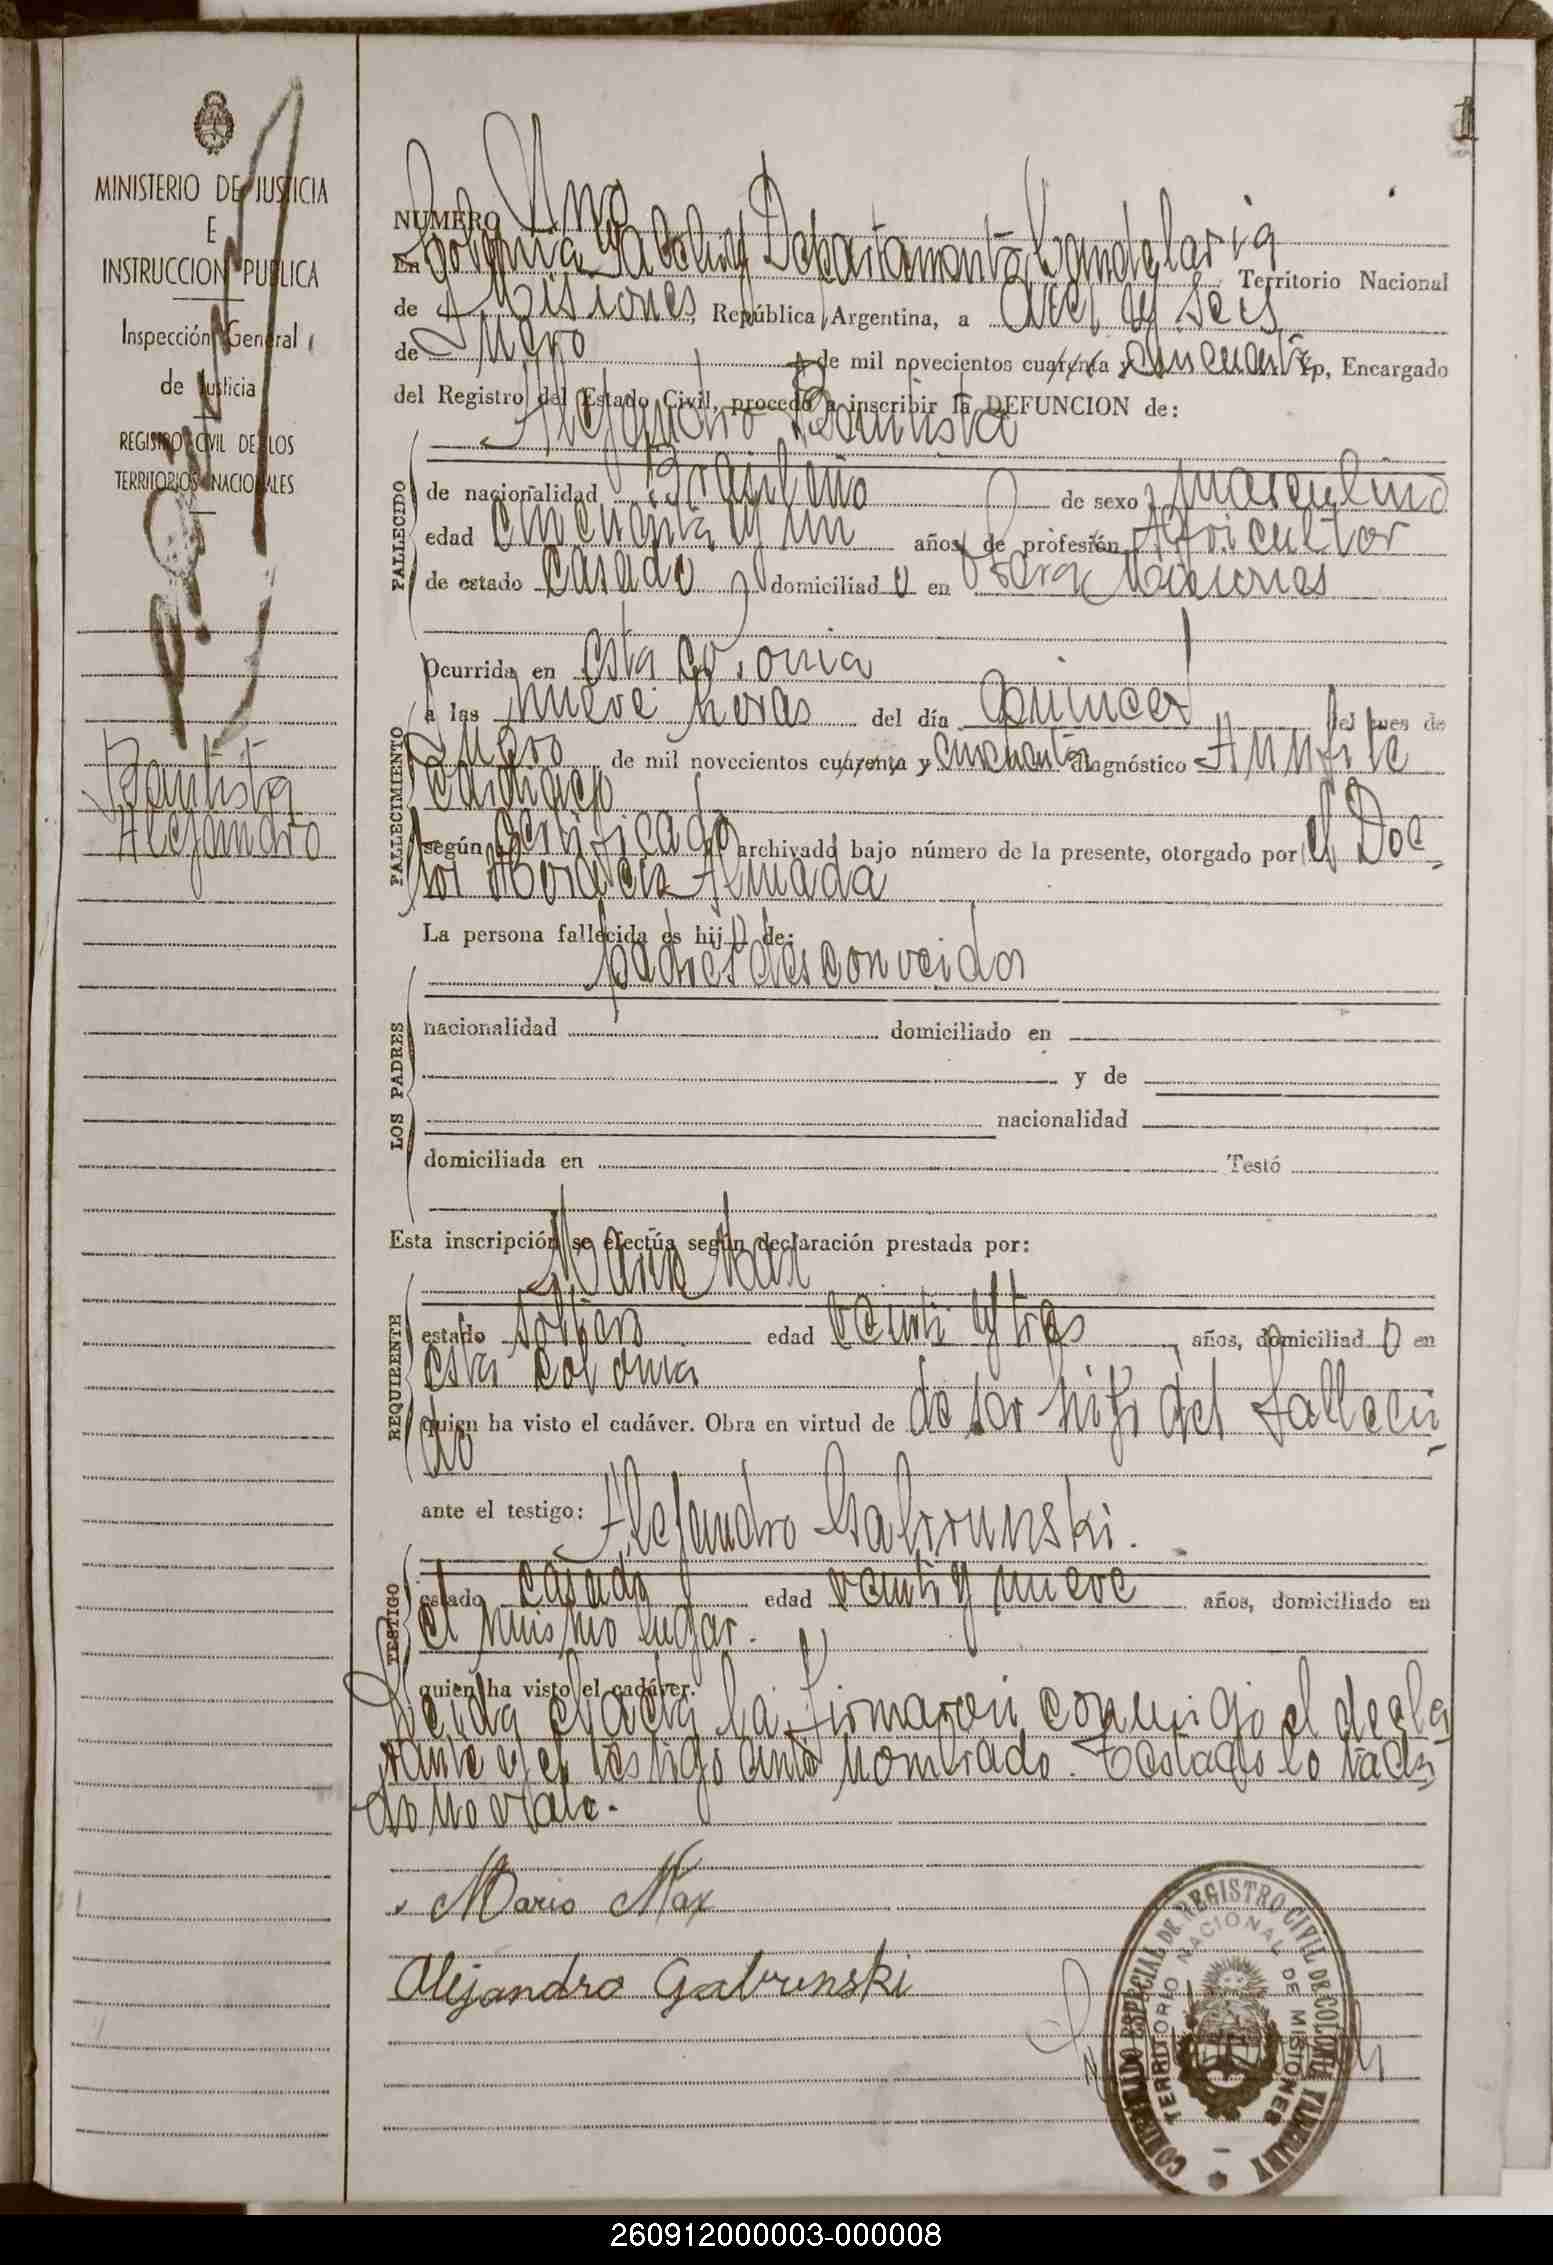 1
MINISTERIO DE JUSTICIA
E
INSTRUCCION PUBLICA
Inspección General
de Justicia
REGISTRO CIVIL DE LOS
TERRITORIOS NACIONALES
Bautista
Alejandro
NUMERO Uno
En Colonia Departamento Candelaria Territorio Nacional
de Misiones, República Argentina, a diez y seis
de Enero de mil novecientos cuarenta y cincuenta Yo, Encargado
del Registro del Estado Civil, procedo a inscribir la DEFUNCION de:
Alejandro Bautista
FALLECIDO
de nacionalidad Brasileño de sexo masculino
edad cincuenta y un años, de profesión Agricultor
de estado casado domiciliado en Misiones
FALLECIMIENTO
Ocurrida en esta colonia
a las nueve horas del día quince del mes de
Enero de mil novecientos cuarenta y cincuenta diagnóstico
según certificado archivado bajo número de la presente, otorgado por el Doc-
tor Almada
La persona fallecida es hijo de:
LOS PADRES
padres desconocidos
nacionalidad domiciliado en
y de
nacionalidad
domiciliada en Testó
Esta inscripción se efectúa según declaración prestada por:
REQUIRENTE
Mario Max
estado soltero edad veinti y tres años, domiciliado en
esta colonia
quien ha visto el cadáver. Obra en virtud de de ser hijo del falleci-
do
ante el testigo: Alejandro Gabrunski.
TESTIGO
estado casado edad veinti y nueve años, domiciliado en
el mismo lugar.
quien ha visto el cadáver.
Leida el acta la firmaron conmigo el decla
rante y el testigo nombrado. Testado lo
do no vale.
Mario Max
Alejandro Gabrunski
COMISARIADO ESPECIAL DE REGISTRO CIVIL DE COLONIA
TERRITORIO NACIONAL DE MISIONES
260912000003-000008